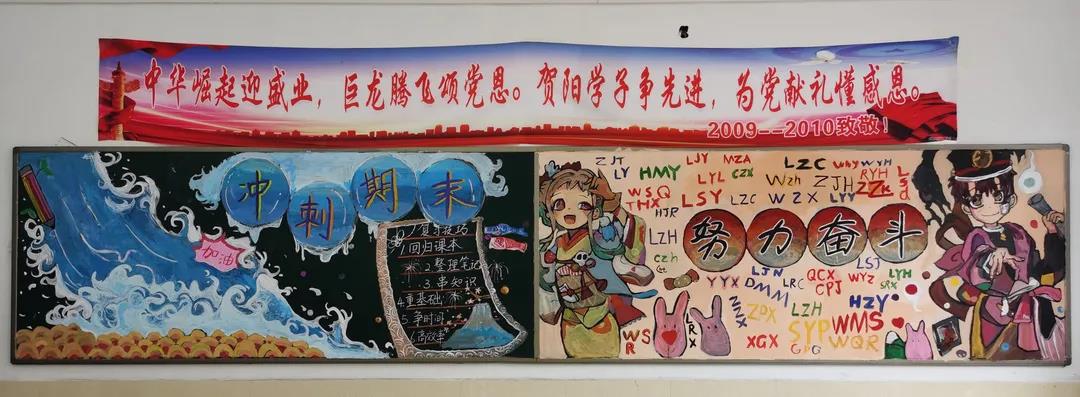 中华崛起迎盛业，巨龙腾飞颂党恩。贺阳学子争先进，为党献礼懂感恩。
2009--2010致敬！
冲刺期末
加油
复习技巧
1回归课本
2.整理笔记
3.串知识
4.重基础
5.争时间
6.高效率
ZJT
LJY
MZA
LZC
Why
WYH
LY
HMY
LYL
CZX
Wzh
ZJH
RYH
ZZK
Lsd
WSQ
THX
LSY
LZC
WZX
LYY
HJR
LZH
努力奋斗
czh
LSJ
LJN
QCX
WYZ
LYH
YYX
DMM
LRC
CPJ
SRX
ZDX
LZH
HZY
SYP
WMS
WSR
RX
XGX
GJG
WQR